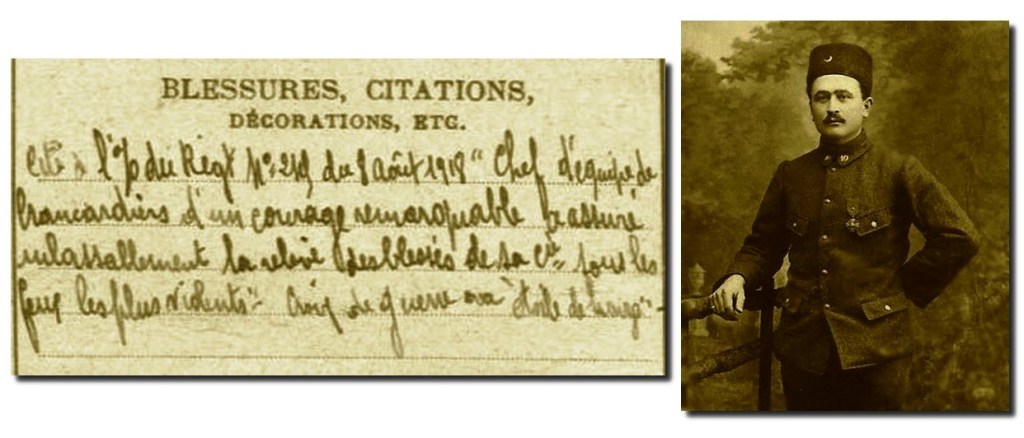 BLESSURES, CITATIONS,
DÉCORATIONS, ETC.
Cité à l'O/ du Régt N° 219 du 8 août 1918 "Chef d'équipe de
brancardiers d'un courage remarquable a assuré
inlassablement la relève des blessés de sa Cie sous les
feux les plus violents" Croix de guerre "étoile de bronze"
10